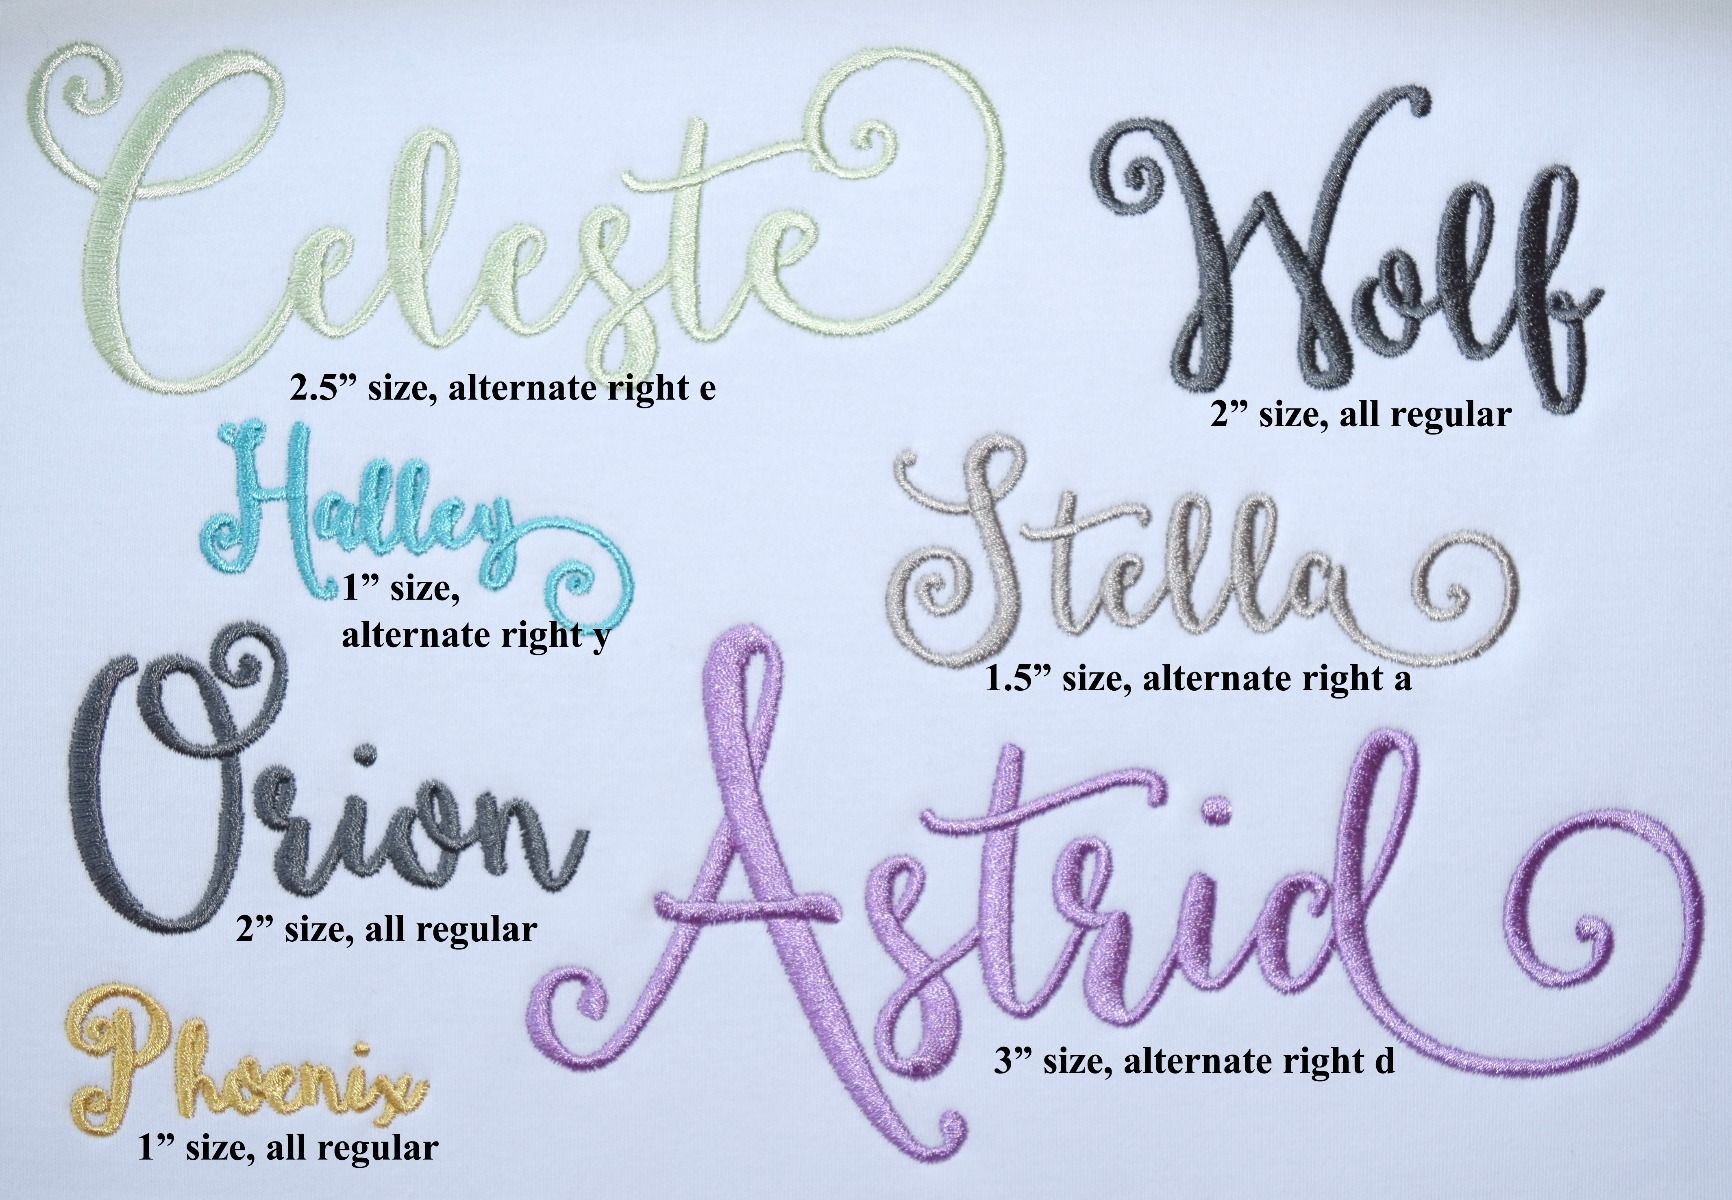 Celeste
2.5” size, alternate right e
Wolf
2” size, all regular
Halley
1” size,
alternate right y
Stella
1.5” size, alternate right a
Orion
2” size, all regular
Astrid
3” size, alternate right d
Phoenix
1” size, all regular